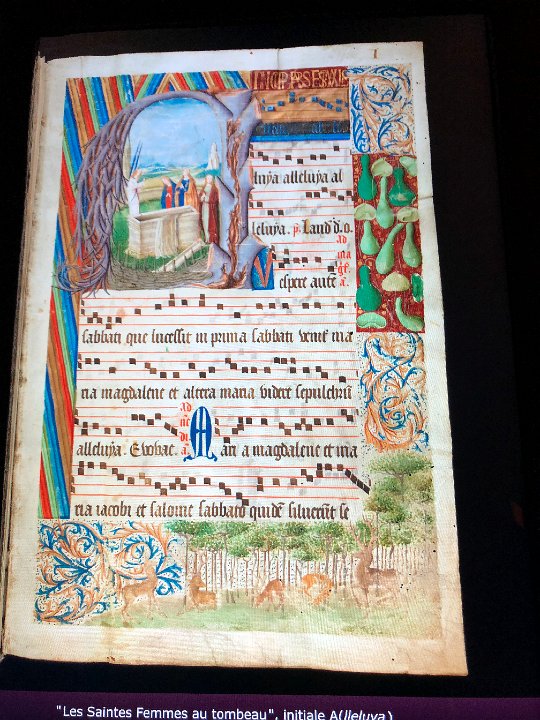 1
luya alleluya al
leluya. p̄. Laud̄. d̄. o.
ad
ma
gt̄.
a.
Vespere autē
sabbati que lucessit in prima sabbati venit ma
ria magdalene et altera maria videre sepulchrū
alleluya. Evovae.
ad
bn̄e
di
a.
Mari a magdalene et ma
ria iacobi et salome sabbato quidē siluerūt se
"Les Saintes Femmes au tombeau", initiale A(lleluya)